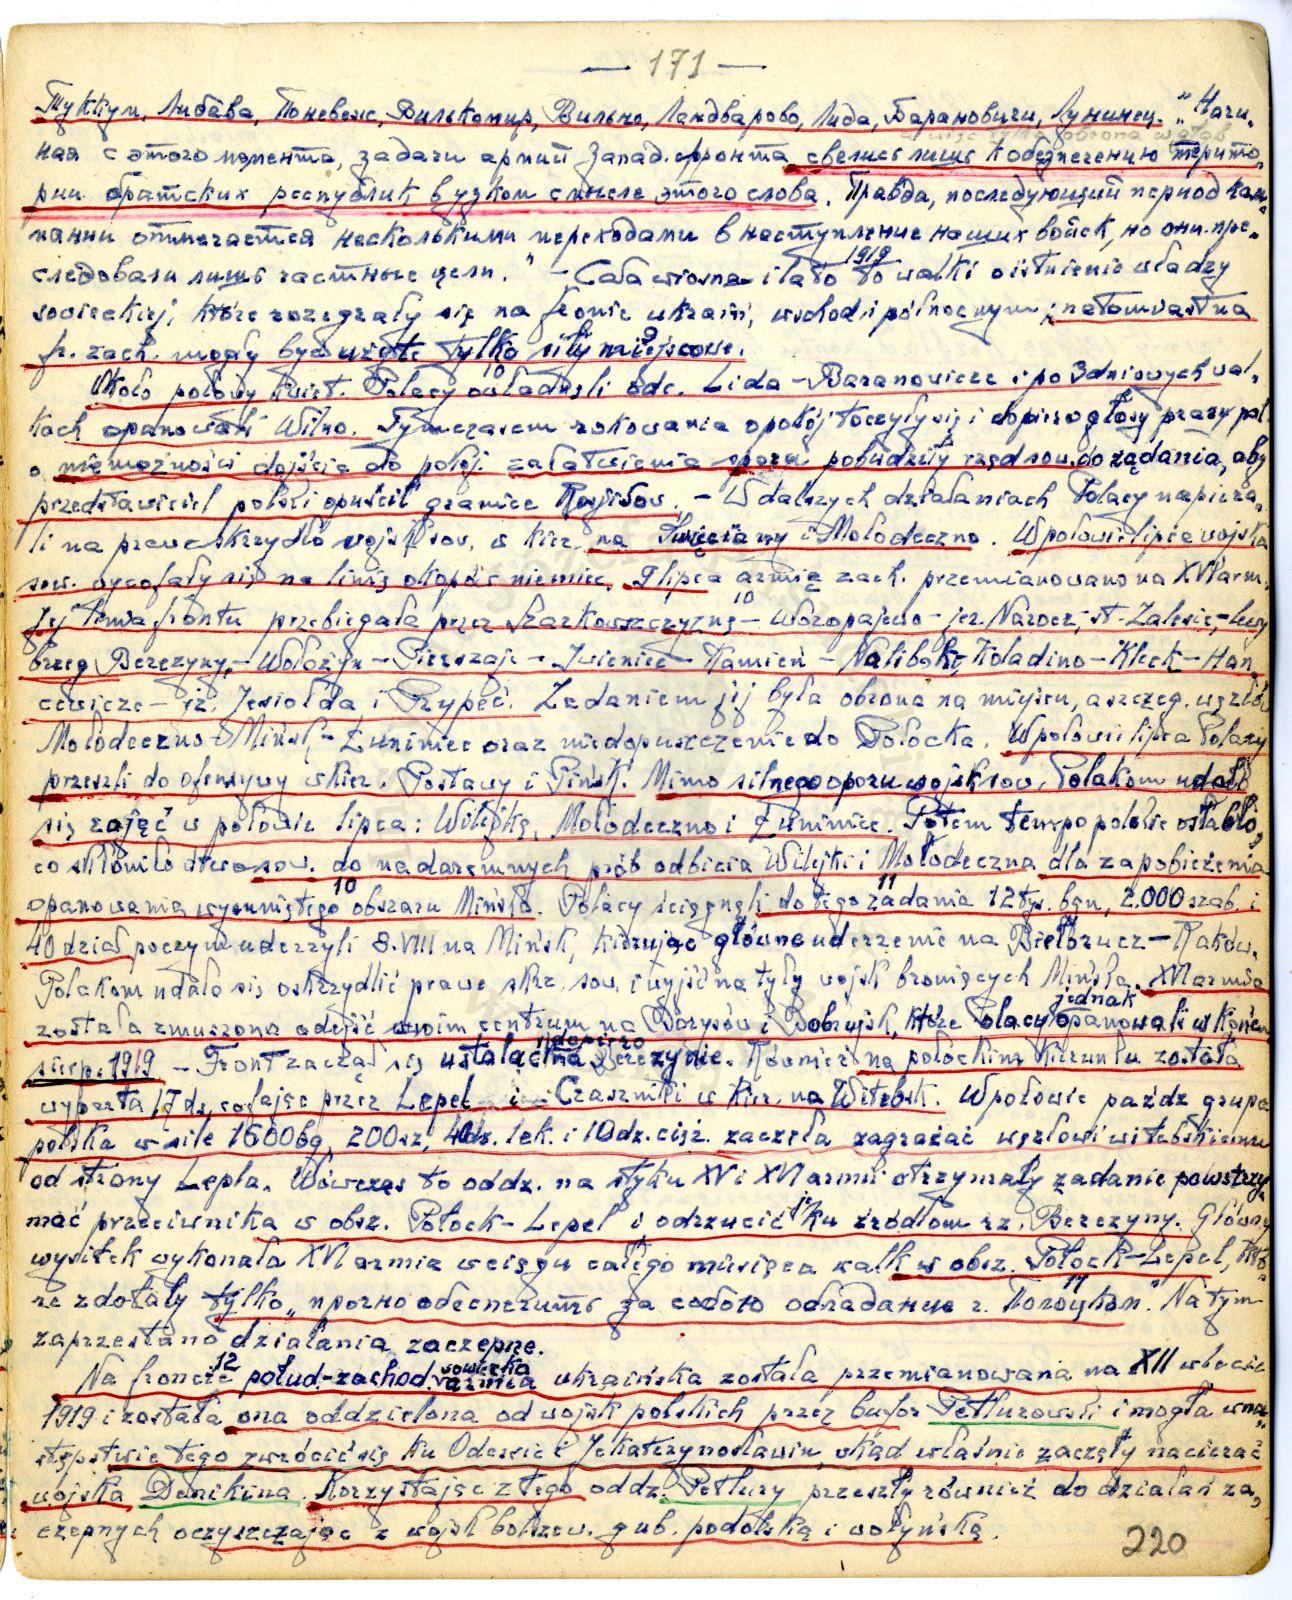 — 171 —
Туккум, Либава, Поневеж, Вилькомир, Вильно, Ландварово, Лида, Барановичи, Лунинец. "Начи,
ная с этого момента, задачи армий Запад. фронта свелись лишь к обезпечению терито,
рии братских республик в узком смысле этого слова. Правда, последующий период кам,
пании отмечается несколькими переходами в наступление наших войск, но они пре,
следовали лишь частные цели." – Cała wiosna i lato 1919 to walki o istnienie władzy
sowieckiej, które rozegrały się na froncie ukraiń, wschod i północnym; natomiast na
fr. zach. mogły być użyte tylko siły miejscowe.
Około połowy kwiet. Polacy owładnęli odc. Lida – Baranowicze i po 3 dniowych wal,
kach opanowali Wilno. Tymczasem rokowania o pokój toczyły się i dopiero głosy prasy pol
o niemożności dojścia do pokoj. załatwienia sporu pobudziły rząd sow. do żądania, aby
przedstawiciel polski opuścił granice Rosji sow. – W dalszych działaniach Polacy napiera,
li na prawe skrzydło wojsk sow. w kier. na Święciany i Mołodeczno. W połowie lipca wojska
sow. wycofały się na linię okopów niemiec. 9 lipca armię zach. przemianowano na XVI arm.
Jej linia frontu przebiegała przez Szarkowszczyznę – Woropajewo – jez. Narocz, st. Zalesie, – lewy
brzeg Berezyny, – Wołożyn – Pierszaje – Iwieniec – Kamień – Naliboki, Koladino – Kleck – Han,
cewicze – rz. Jesiołda i Prypeć. Zadaniem jej była obrona na miejscu, a szczeg. węzłów
Mołodeczno – Mińsk – Łuniniec oraz niedopuszczenie do Połocka. W połowie lipca Polacy
przeszli do ofensywy w kier. Postawy i Pińsk. Mimo silnego oporu wojsk sow. Polakom udało
się zająć w połowie lipca: Wilejkę, Mołodeczno i Łuniniec. Potem tempo polskie osłabło,
co skłoniło dtwo sow. do nadaremnych prób odbicia Wilejki i Mołodeczna dla zapobieżenia
opanowania wysuniętego obszaru Mińska. Polacy ściągnęli do tego zadania 12 tys. bgn, 2.000 szab. i
40 dział poczym uderzyli 8.VIII na Mińsk, kierując główne uderzenie na Biełorucz – Raków.
Polakom udało się oskrzydlić prawe skrz. sow. i wyjść na tyły wojsk broniących Mińska. XVI armia
została zmuszona odejść swoim centrum na Borysów i Bobrujsk, które Polacy jednak opanowali w końcu
sierp. 1919 – Front zaczął się ustalać dopiero na Berezynie. Również na połockim kierunku została
wyparta 17 ds, cofając przez Lepel i Czaszniki w kier. na Witebsk. W połowie paźdz grupa
polska w sile 1600 bg, 200 sz, 4 dz. lek. i 10 dz. cięż. zaczęła zagrażać węzłowi witebskiemu
od strony Lepla. Wówczas to oddz. na styku XV i XVI armii otrzymały zadanie powstrzy,
mać przeciwnika w obsz. Połock – Lepel i odrzucić je ku źródłom rz. Berezyny. Główny
wysiłek wykonała XVI armia w ciągu całego miesiąca walk w obsz. Połock – Lepel, któ,
re zdołały tylko „прочно обеспечить за собою обладание г. Полоцком". Na tym
zaprzestano działania zaczepne.
Na froncie połud.-zachod. sowiecka armia ukraińska została przemianowana na XII w lecie
1919 i została ona oddzielona od wojsk polskich przez bufor Petlurowski i mogła w na,
stępstwie tego zwrócić się ku Odessie i Jekaterynosławiu, skąd właśnie zaczęły nacierać
wojska Denikina. Korzystając z tego oddz. Petlury przeszły również do działań za,
czepnych oczyszczając z wojsk bolszew. gub. podolską i wołyńską.
220